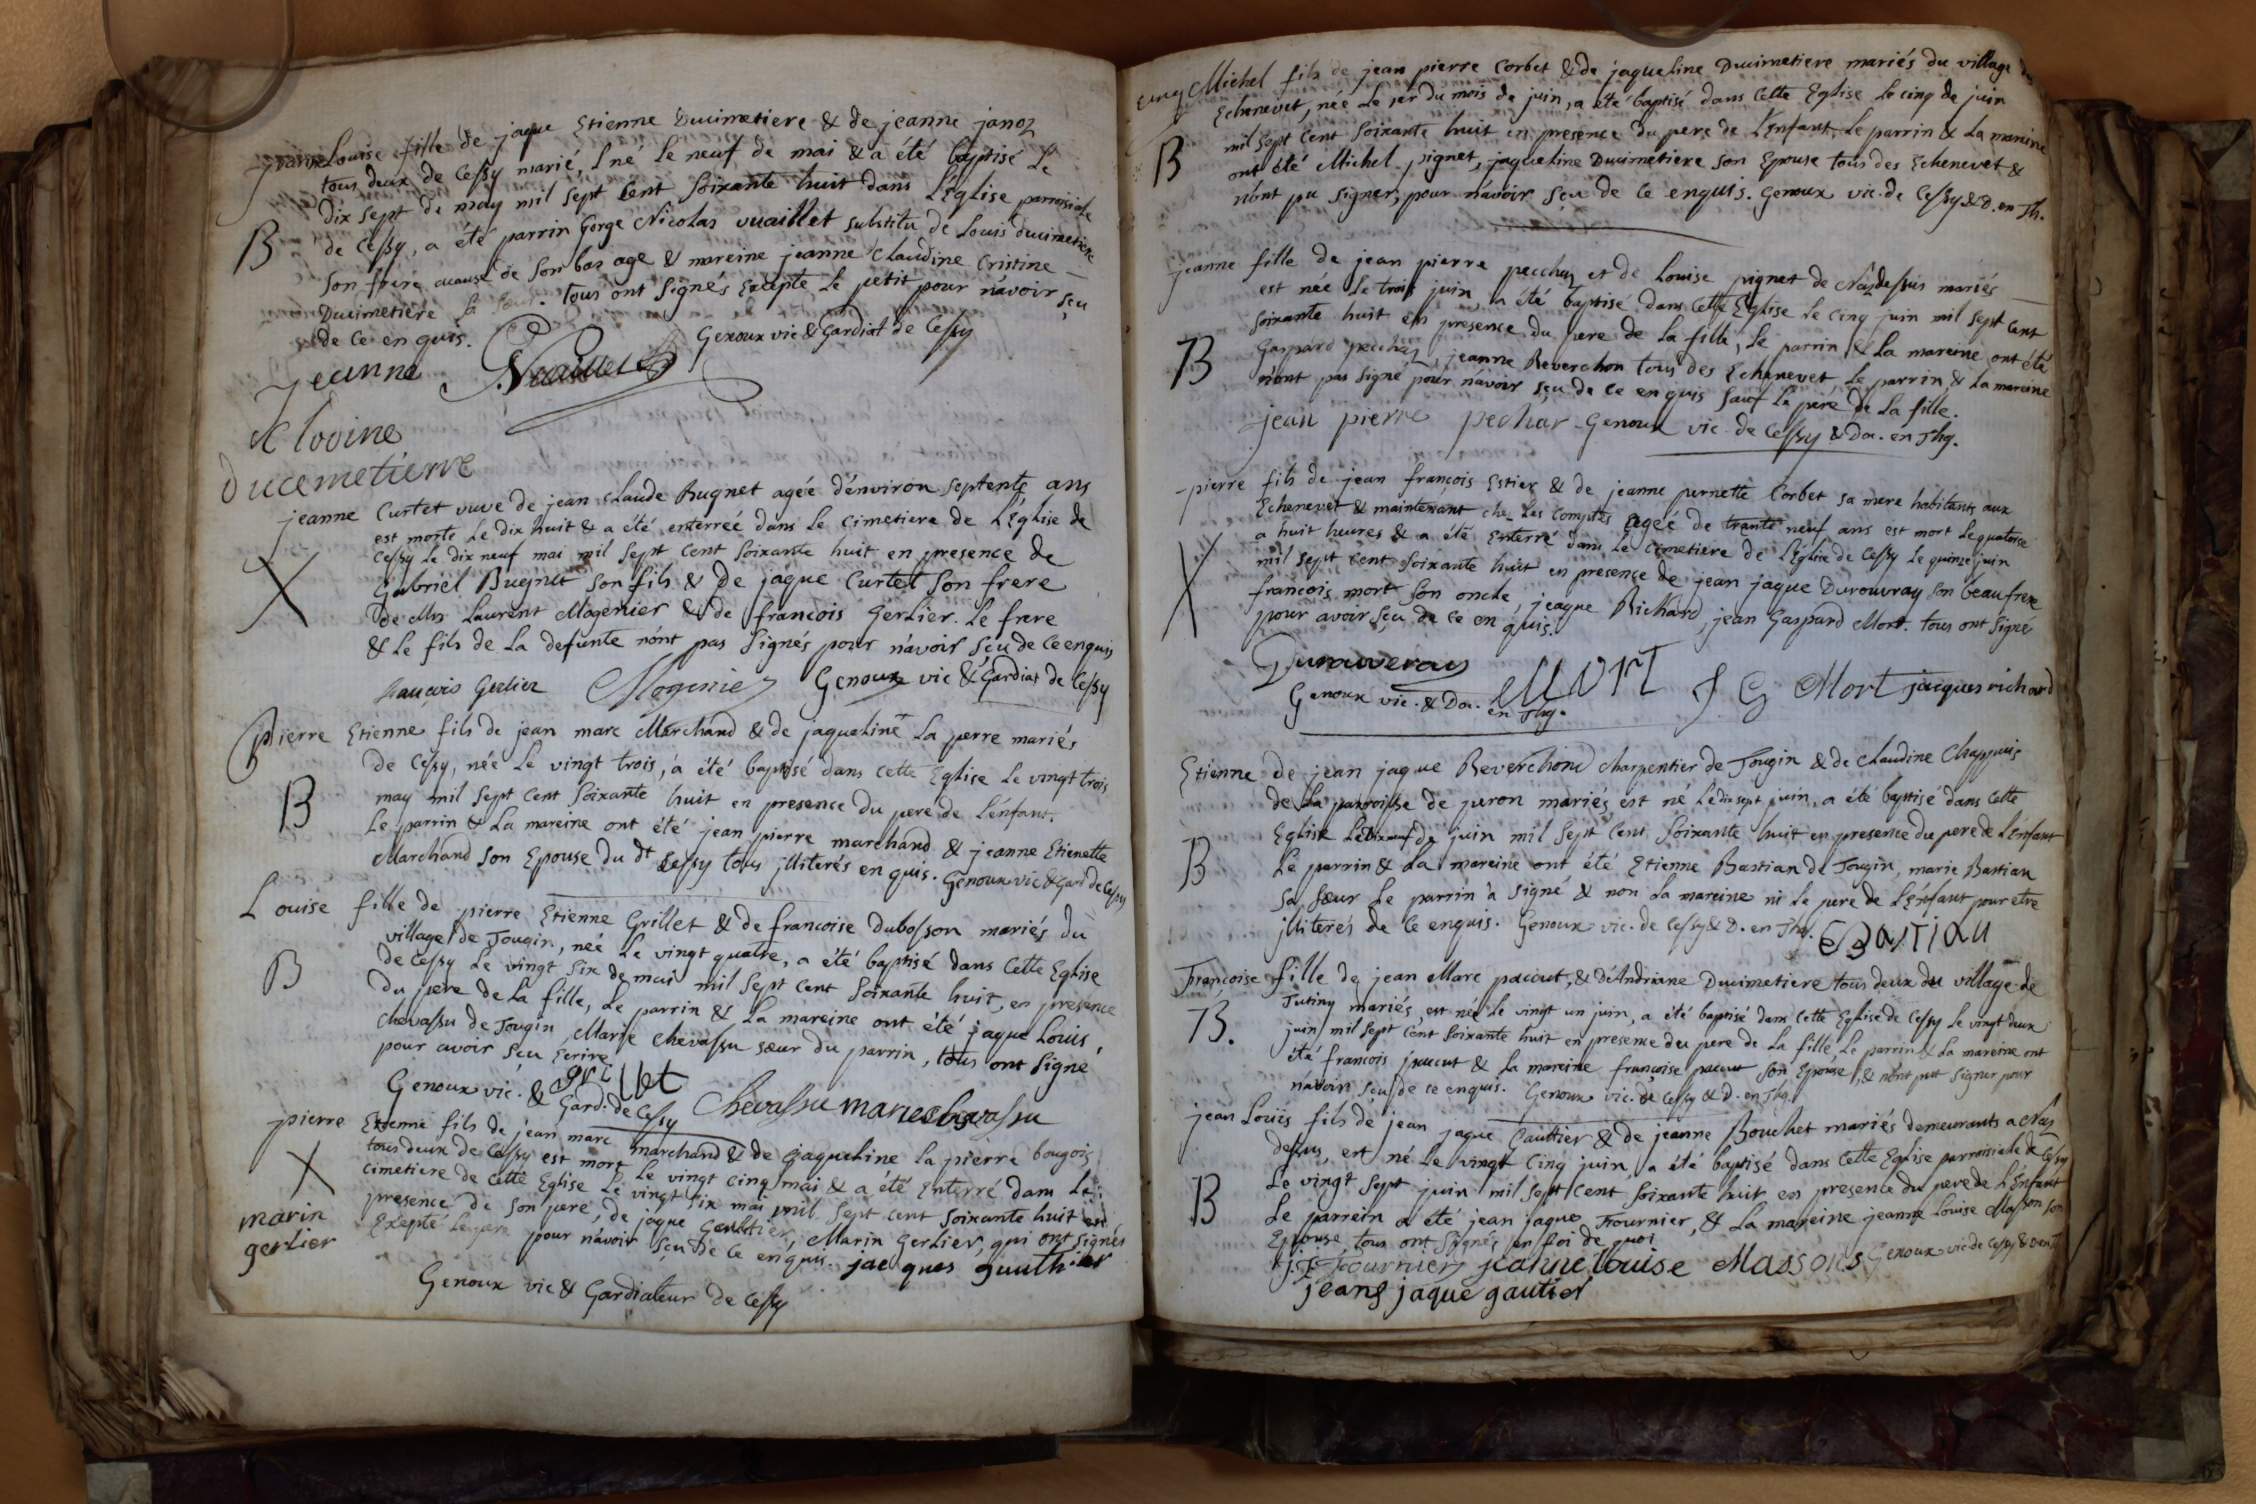 Louise fille de jaque Etienne Ducimetiere & de jeanne janoz
tous deux de Cessy marié, né le neuf de mai & a été baptisé Le
dix sept de may mil sept Cent Soixante huit dans L'Eglise parroisiale
B
de Cessy, a été parrin Gorge Nicolas vuaillet substitu de Louis Ducimetiere
son frere acause de son bas age & mareine jeanne Claudine Cristine
Ducimetiere sa sœur. tous ont signés Excepte Le petit pour navoir sçu
de ce en quis.
Genoux vic & Gardiat de Cessy
jeanne
Ducemetierre
jeanne Curtet vuve de jean Claude Bugnet agée d'environ septente ans
est morte Le dix huit & a été enterreé dans Le Cimetiere de L'Eglise de
Cessy Le dix neuf mai mil sept cent soixante huit en presence de
X
Gabriel Bugnet son fils & de jaque Curtet son frere
de Laurent Mogenier & de francois Gerlier. Le frere
& Le fils de La defunte n'ont pas signés pour n'avoir sçu de ce enquis
francois Gerlier Mogenier Genoux vic & Gardiat de Cessy
pierre Etienne fils de jean marc Marchand & de jaqueline La perre mariés
de Cessy, née Le vingt trois, a été baptisé dans cette Eglise Le vingt trois
B
may mil sept Cent soixante huit en presence du pere de L'enfant.
Le parrin & La mareine ont été jean pierre marchand & jeanne Etienette
Marchand son Epouse du dt Cessy tous jlliterés en quis. Genoux vic & Gard de Cessy
Louise fille de pierre Etienne Grillet & de francoise Dubosson mariés du
village de Tougin, née Le vingt quatre, a été baptisé dans Cette Eglise
B
de Cessy Le vingt six de mai mil sept cent soixante huit, en presence
du pere de La fille, Le parrin & La mareine ont été jaque Louis
Chevassu de Tougin, Marie Chevassu sœur du parrin, tous ont signé
pour avoir sçu Ecrire
Genoux vic. & Gard. de Cessy grillet Chevassu marie chevassu
pierre Etienne fils de jean marc marchand & de jaqueline la pierre bougois
X
tous deux de Cessy est mort Le vingt cinq mai & a été Enterré dans Le
cimetiere de Cette Eglise Le vingt six mai mil sept cent soixante huit en
presence de son pere, de jaque Gaultier, Marin Gerlier, qui ont signés
Exepté Le pere pour navoir sçu de ce en quis. jacques guuthier
marin
gerlier
Genoux vic & Gardiateur de Cessy
Michel fils de jean pierre Corbet & de jaqueline Ducimetiere mariés du village
Echenevet, née Le 1er du mois de juin, a été baptisé dans Cette Eglise Le cinq de juin
B
mil sept Cent soixante huit en presence du pere de L'Enfant, Le parrin & La mareine
ont été Michel pignet, jaqueline Ducimetiere son Epouse tous des Echenevet &
n'ont pu signer, pour n'avoir sçu de Ce enquis. Genoux vic. de Cessy & D. en Th.
jeanne fille de jean pierre pecchaz et de Louise pignet de Nazdessus mariés
est née Le trois juin, a été baptisé dans Cette Eglise Le cinq juin mil sept cent
soixante huit en presence du pere de La fille, Le parrin & La mareine ont été
B
Gaspard pecchaz, jeanne Reverchon tous des Echenevet, Le parrin & La mareine
n'ont pas signé pour n'avoir sçu de ce en quis sauf Le pere de La fille.
jean pierre pechar Genoux vic. de Cessy & Doc. en Thg.
pierre fils de jean françois Estier & de jeanne pernette Corbet sa mere habitants aux
Echenevet & maintenant Les Comptes ageé de trante neuf ans est mort Le quatorse
a huit heures & a été Enterré dans Le cimetiere de L'Eglise de Cessy Le quinze juin
X
mil sept cent soixante huit en presence de jean jaque Durouvray son beau frere
francois mort son oncle, jeaque Richard, jean Gaspard Mort. tous ont signé
pour avoir sçu de ce en quis.
Duraweray
Genoux vic. & Doc. en Thg. MORT J G Mort jacques richard
Etienne de jean jaque Reverchond charpentier de Tougin & de Claudine Chappuis
de La parroisse de peron mariés est né Le dix sept juin, a été baptisé dans Cette
Eglise Le dix neuf de juin mil sept cent soixante huit en presence du pere de L'Enfant
B
Le parrin & La mareine ont été Etienne Bastian de Tougin, marie Bastian
sa sœur Le parrin a signé & non La mareine ni Le pere de L'Enfant pour etre
jlliterés de Ce enquis. Genoux vic. de Cessy & D. en Thg. E Bastian
Francoise fille de jean Marc pacout, & d'Andriane Ducimetiere tous deux du village de
Tutiny mariés, est née Le vingt un juin, a été baptisé dans Cette Eglise de Cessy Le vingt deux
B.
juin mil sept cent soixante huit en presence du pere de La fille, Le parrin & La mareine ont
été francois pacout & La mareine françoise pacout son Epouse, & n'ont put signer pour
n'avoir sçu de ce enquis. Genoux vic. de Cessy & D. en Thg.
jean Louis fils de jean jaque Gaultier & de jeanne Bouchet mariés demeurants a Naz
dessus, est né Le vingt Cinq juin, a été baptisé dans Cette Eglise parroisiale de Cessy
B
Le vingt sept juin mil sept cent soixante huit en presence du pere de L'Enfant
Le parrein a été jean jaque Fournier, & La mareine jeanne Louise Masson son
Epouse tous ont signés en foi de quoi
jj Fournier jeanne louise Massons Genoux vic de Cessy & D en Th
jeans jaque gautier